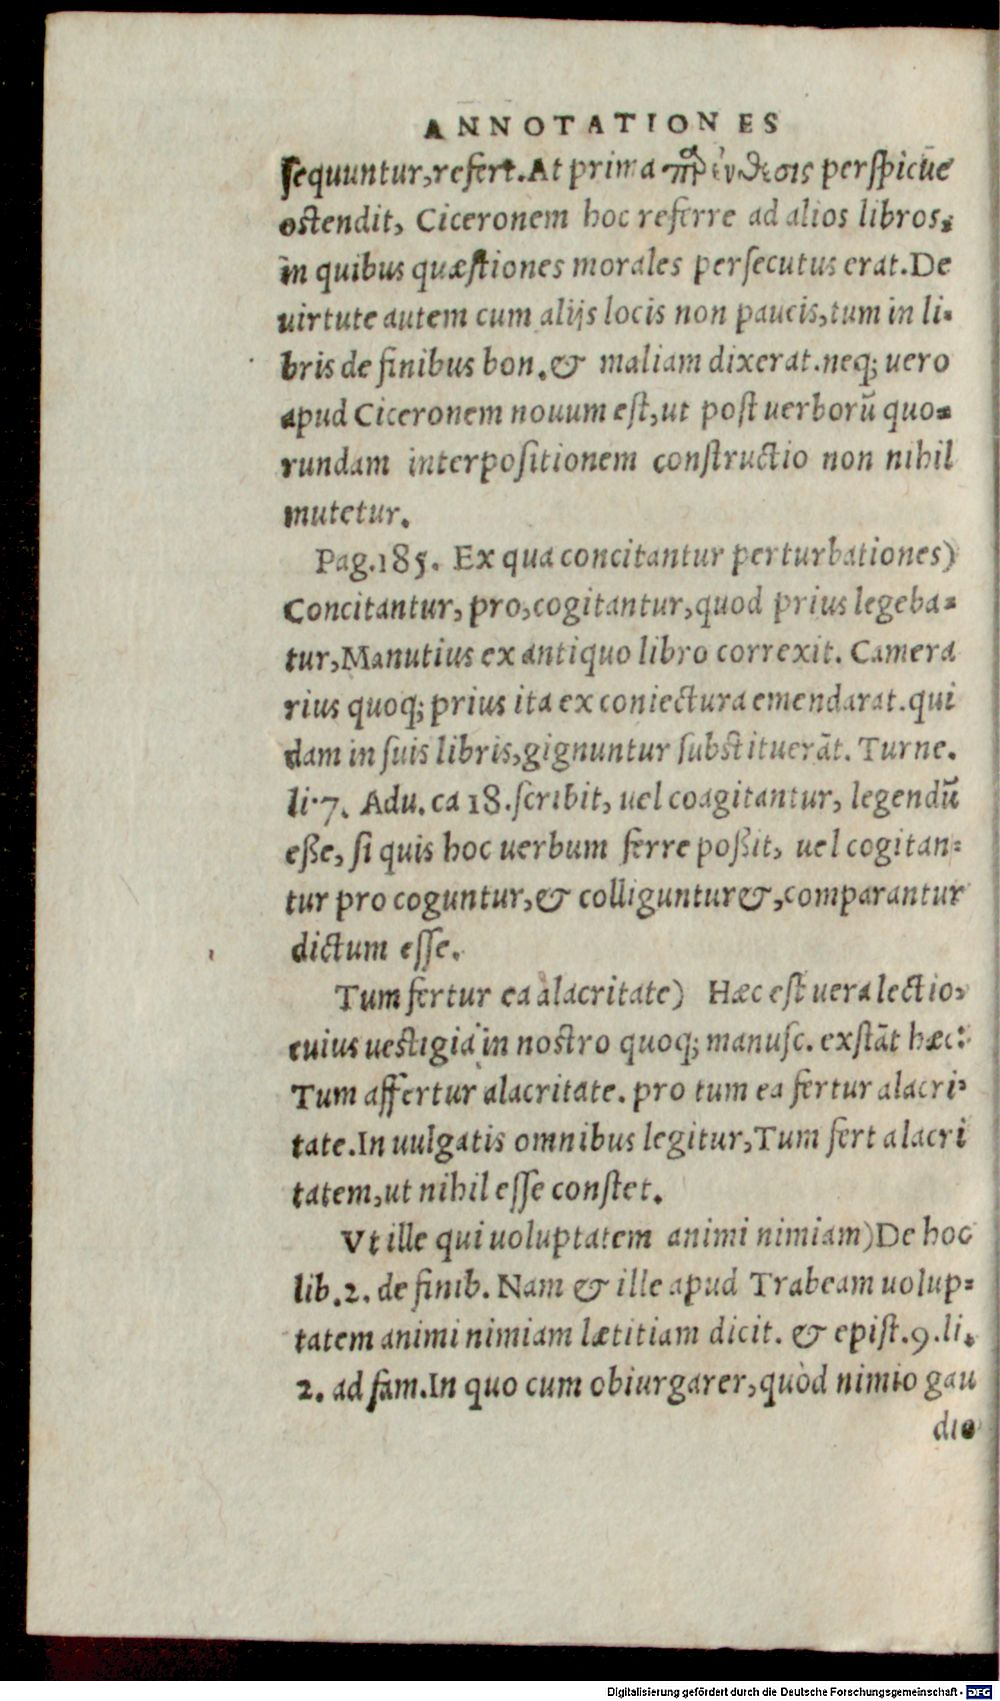 ANNOTATIONES
sequuntur, refert. At prima perspicue
ostendit, Ciceronem hoc referre ad alios libros,
in quibus quæstiones morales persecutus erat. De
uirtute autem cum alijs locis non paucis, tum in li-
bris de finibus bon. & maliam dixerat. neq; uero
apud Ciceronem nouum est, ut post uerborū quo-
rundam interpositionem constructio non nihil
mutetur.
Pag. 185. Ex qua concitantur perturbationes)
Concitantur, pro, cogitantur, quod prius legeba-
tur, Manutius ex antiquo libro correxit. Camera
rius quoq; prius ita ex coniectura emendarat. qui
dam in suis libris, gignuntur substituerāt. Turne.
li. 7. Adu. ca 18. scribit, uel coagitantur, legendū
eße, si quis hoc uerbum ferre poßit, uel cogitan-
tur pro coguntur, & colliguntur &, comparantur
dictum esse.
Tum fertur ea alacritate) Hæc est uera lectio,
cuius uestigia in nostro quoq; manusc. exstāt hæc:
Tum affertur alacritate. pro tum ea fertur alacri-
tate. In uulgatis omnibus legitur, Tum fert alacri
tatem, ut nihil esse constet.
Vt ille qui uoluptatem animi nimiam) De hoc
lib. 2. de finib. Nam & ille apud Trabeam uolup-
tatem animi nimiam lætitiam dicit. & epist. 9. li.
2. ad fam. In quo cum obiurgarer, quòd nimio gau
dio
Digitalisierung gefördert durch die Deutsche Forschungsgemeinschaft - DFG